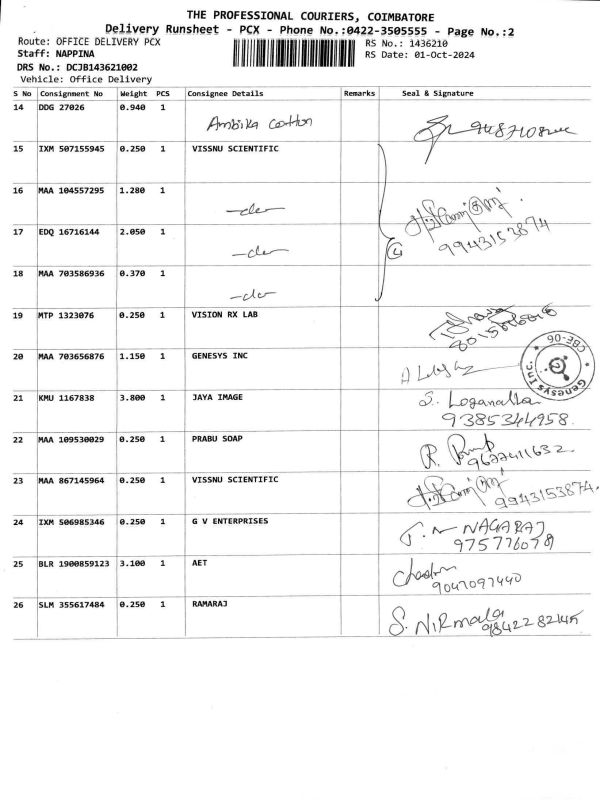 THE PROFESSIONAL COURIERS, COIMBATORE
Delivery Runsheet - PCX - Phone No.:0422-3505555 - Page No.:2
Route: OFFICE DELIVERY PCX
RS No.: 1436210
Staff: NAPPINA
RS Date: 01-Oct-2024
DRS No.: DCJB143621002
Vehicle: Office Delivery
S No Consignment No Weight PCS Consignee Details Remarks Seal & Signature
14 DDG 27026 0.940 1 Ambika Cotton
15 IXM 507155945 0.250 1 VISSNU SCIENTIFIC
16 MAA 104557295 1.280 1
17 EDQ 16716144 2.050 1
④ 9943153874
18 MAA 703586936 0.370 1
19 MTP 1323076 0.250 1 VISION RX LAB
20 MAA 703656876 1.150 1 GENESYS INC
CBE-06 Genesys Inc.
21 KMU 1167838 3.800 1 JAYA IMAGE S. Loganatha
9385344958.
22 MAA 109530029 0.250 1 PRABU SOAP
9677411632.
23 MAA 867145964 0.250 1 VISSNU SCIENTIFIC 9943153874.
24 IXM 506985346 0.250 1 G V ENTERPRISES T. N NAGARAJ
25 BLR 1900859123 3.100 1 AET
9047097440
26 SLM 355617484 0.250 1 RAMARAJ S. NIRmala
9842282145